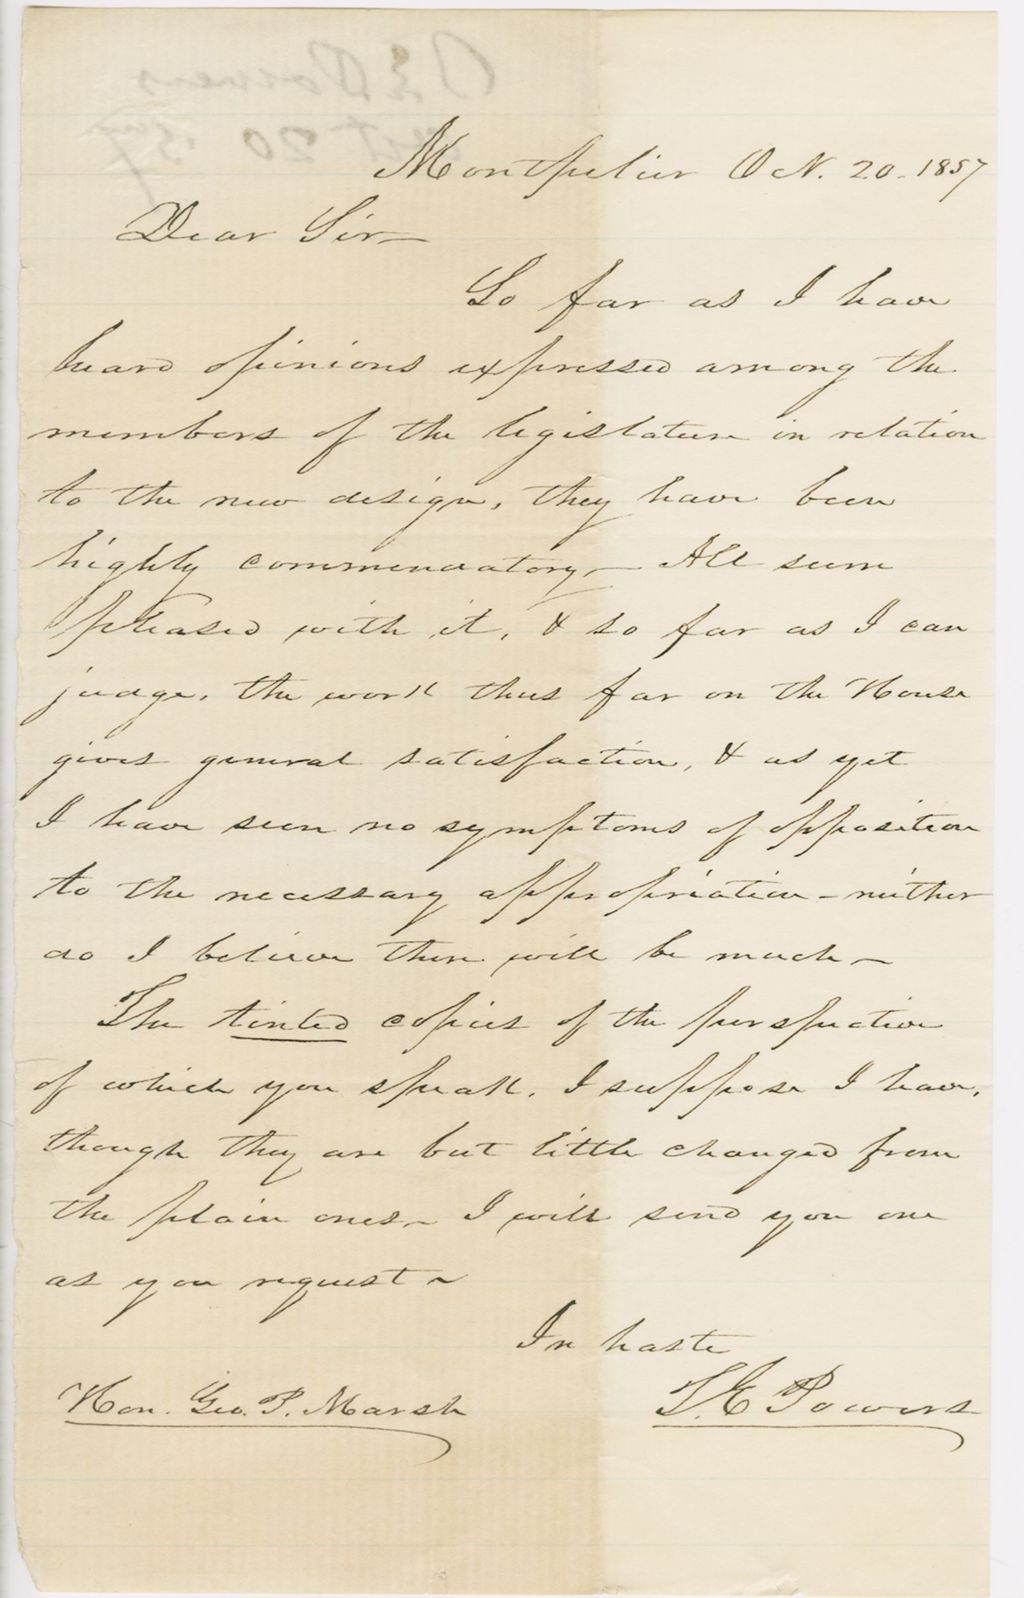 Montpelier Oct. 20. 1857
Dear Sir—
So far as I have
heard opinions expressed among the
members of the legislature in relation
to the new design, they have been
highly commendatory— All seem
pleased with it, & so far as I can
judge, the work thus far on the House
gives general satisfaction, & as yet
I have seen no symptoms of opposition
to the necessary appropriation - neither
do I believe there will be much—
The tinted copies of the perspective
of which you speak, I suppose I have,
though they are but little changed from
the plain ones— I will send you one
as you request—
In haste
T. E. Powers
Hon. Geo. P. Marsh